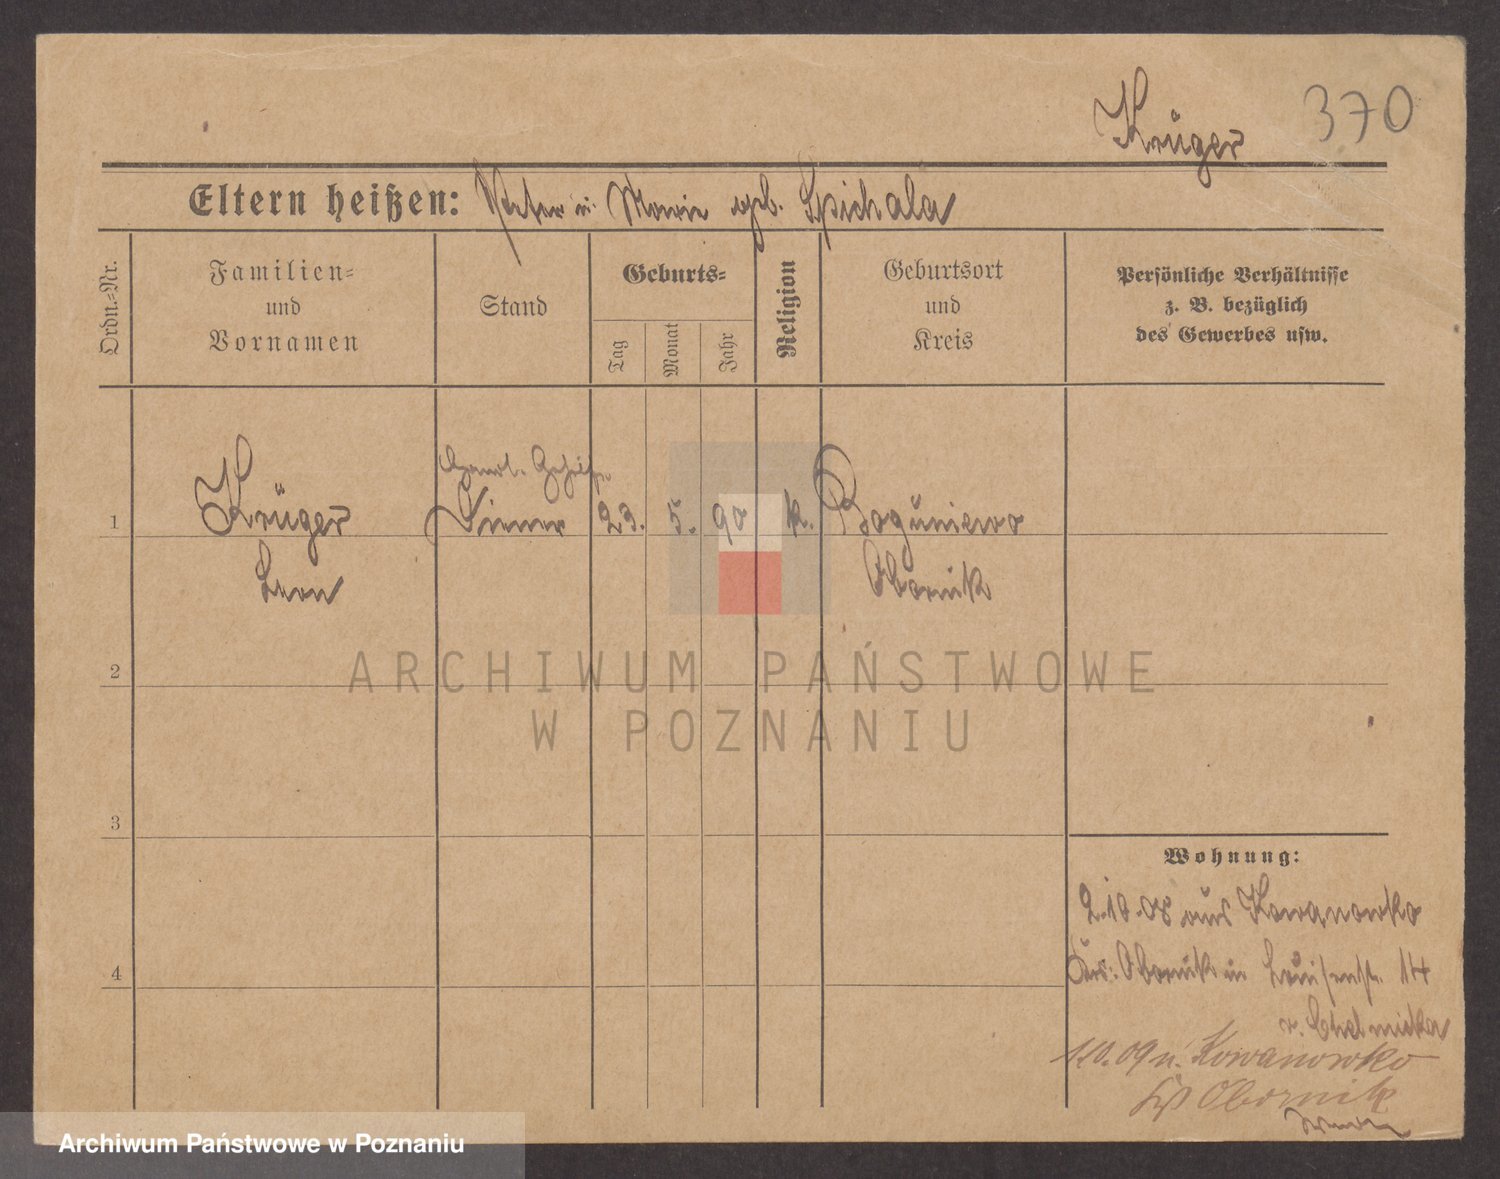 Krüger 370
Eltern heißen: Peter u. Marie geb. Spichala
Ordn.=Nr.
Familien=
und
Vornamen
Stand
Geburts=
Tag
Monat
Jahr
Religion
Geburtsort
und
Kreis
Persönliche Verhältnisse
z. B. bezüglich
des Gewerbes usw.
1 Krüger Diener 23. 5. 90 k. Boguniewo
Leon Obornik
2
ARCHIWUM PAŃSTWOWE
W POZNANIU
3
Wohnung:
2.10.08 aus Kowanowko
Krs: Obornik in Louisenstr. 14
4
1.10.09 n. Kowanowko
Obornik
Archiwum Państwowe w Poznaniu